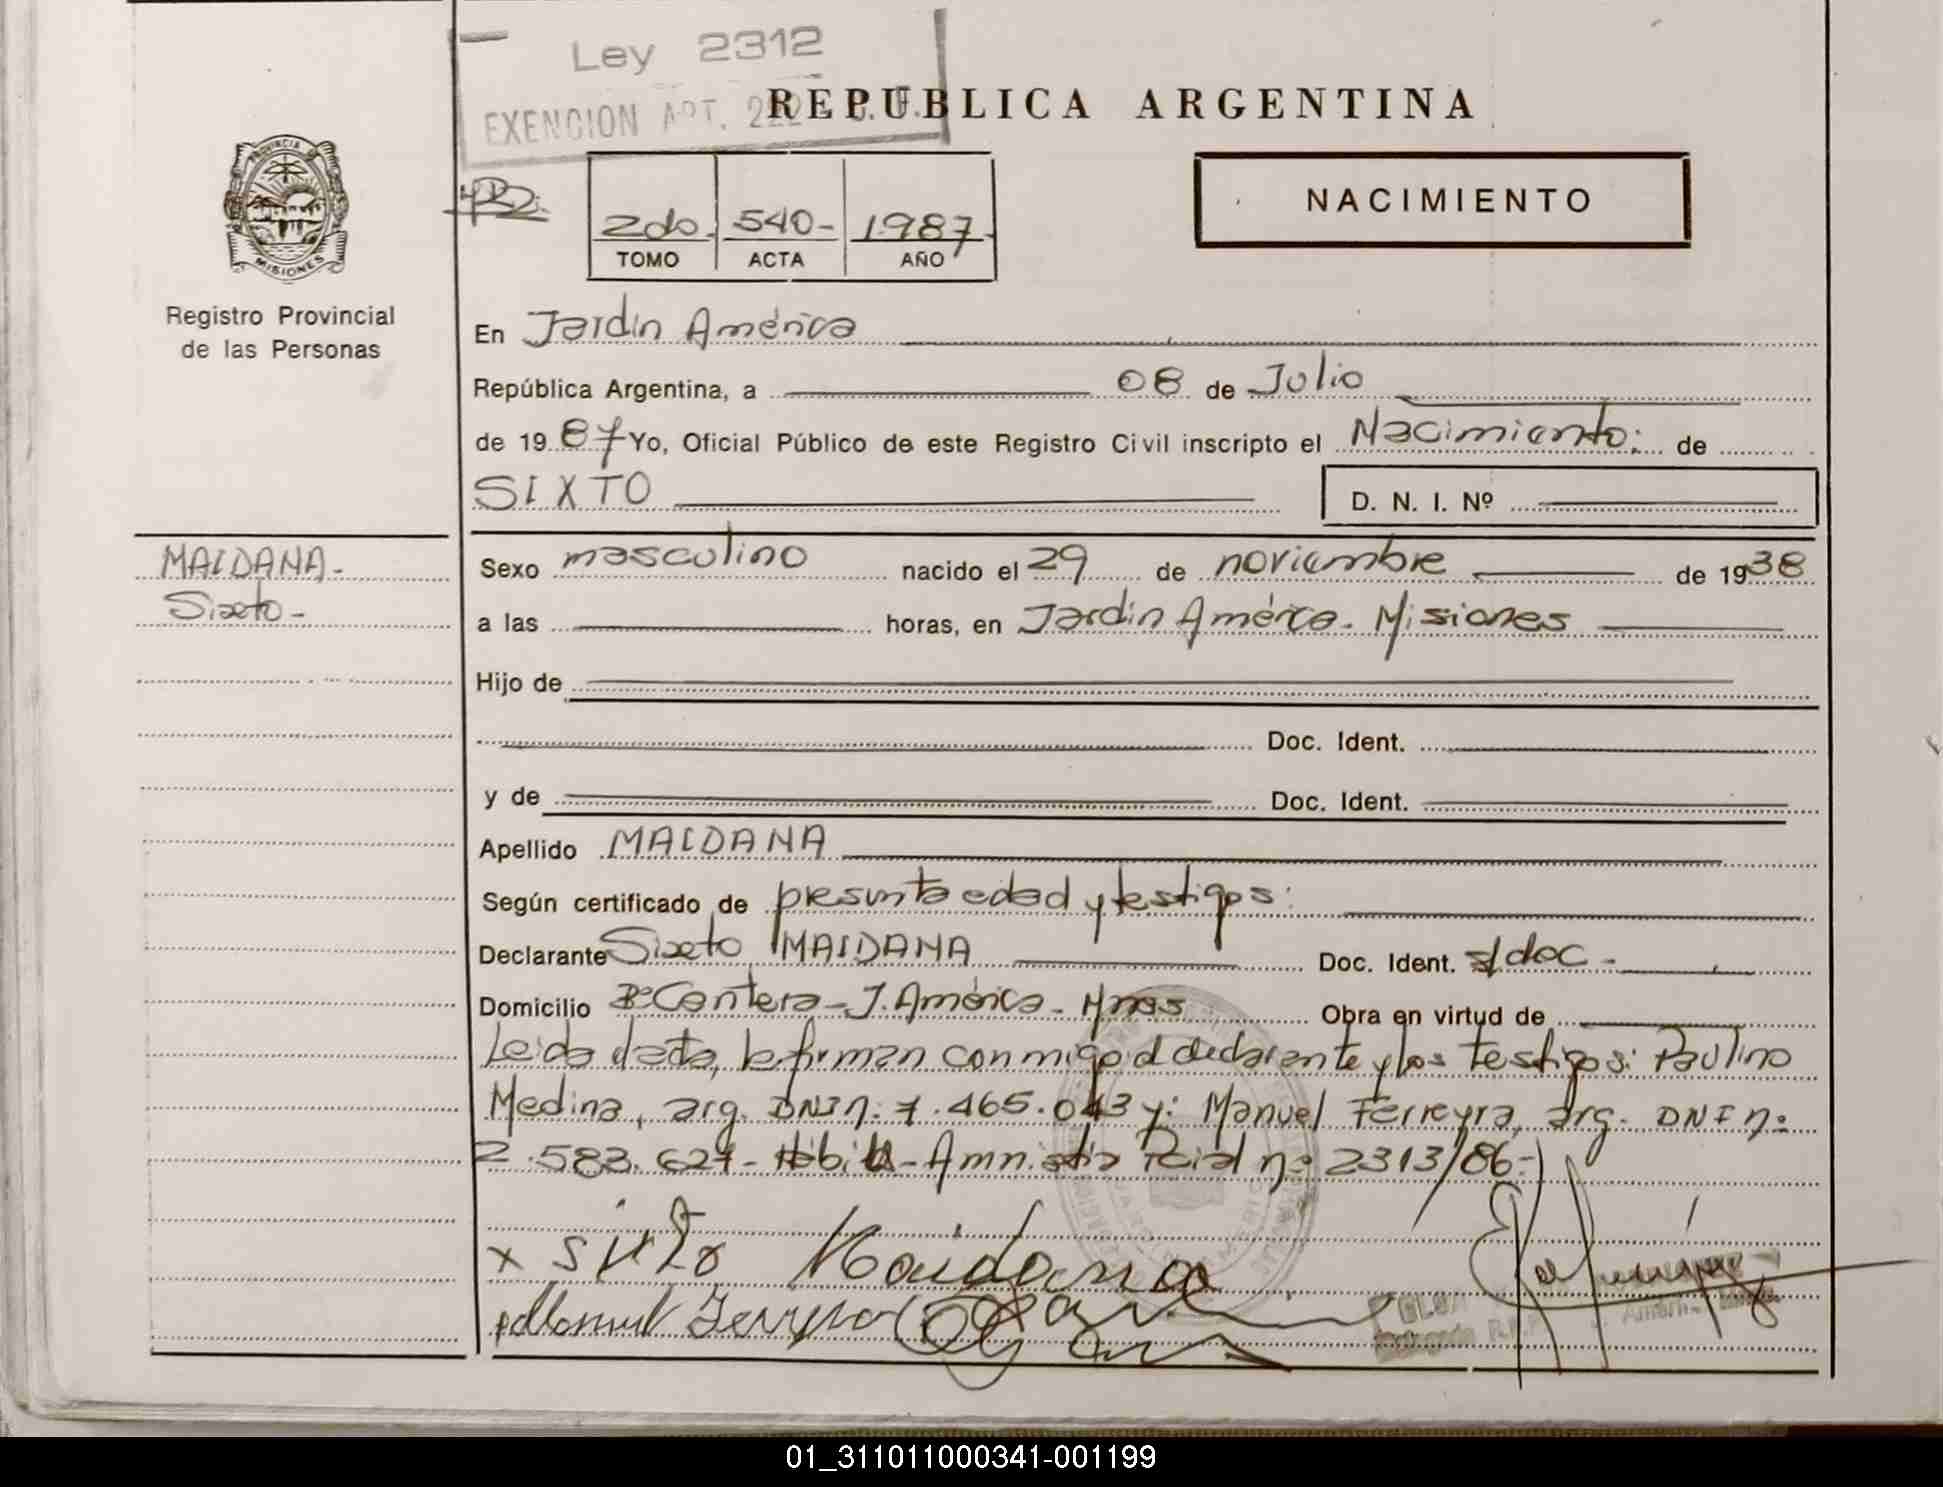 Ley 2312
EXENCION ART. 222 C.F.
REPUBLICA ARGENTINA
PROVINCIA DE
MISIONES
Registro Provincial
de las Personas
NACIMIENTO
2do. 540- 1987-
TOMO ACTA AÑO
En Jardín América
República Argentina, a 08 de Julio
de 1987 Yo, Oficial Público de este Registro Civil inscripto el Nacimiento: de
SIXTO D. N. I. Nº
MAIDANA-
Sixto-
Sexo masculino nacido el 29 de noviembre de 1938
a las horas, en Jardín América. Misiones
Hijo de
Doc. Ident.
y de Doc. Ident.
Apellido MAIDANA
Según certificado de presunta edad y testigos:
Declarante Sixto MAIDANA Doc. Ident. s/doc-
Domicilio Bº Cantera-J. América- Mnes Obra en virtud de
Leída el acta, la firman conmigo el declarante y los testigos: Paulino
Medina, arg. DNI n: 7.465.043 y: Manuel Ferreyra, arg. DNI n:
2.583.627- Amnistía Pcial nº 2313/86-
x sixto Maidana
Manuel Ferreyra
01_311011000341-001199